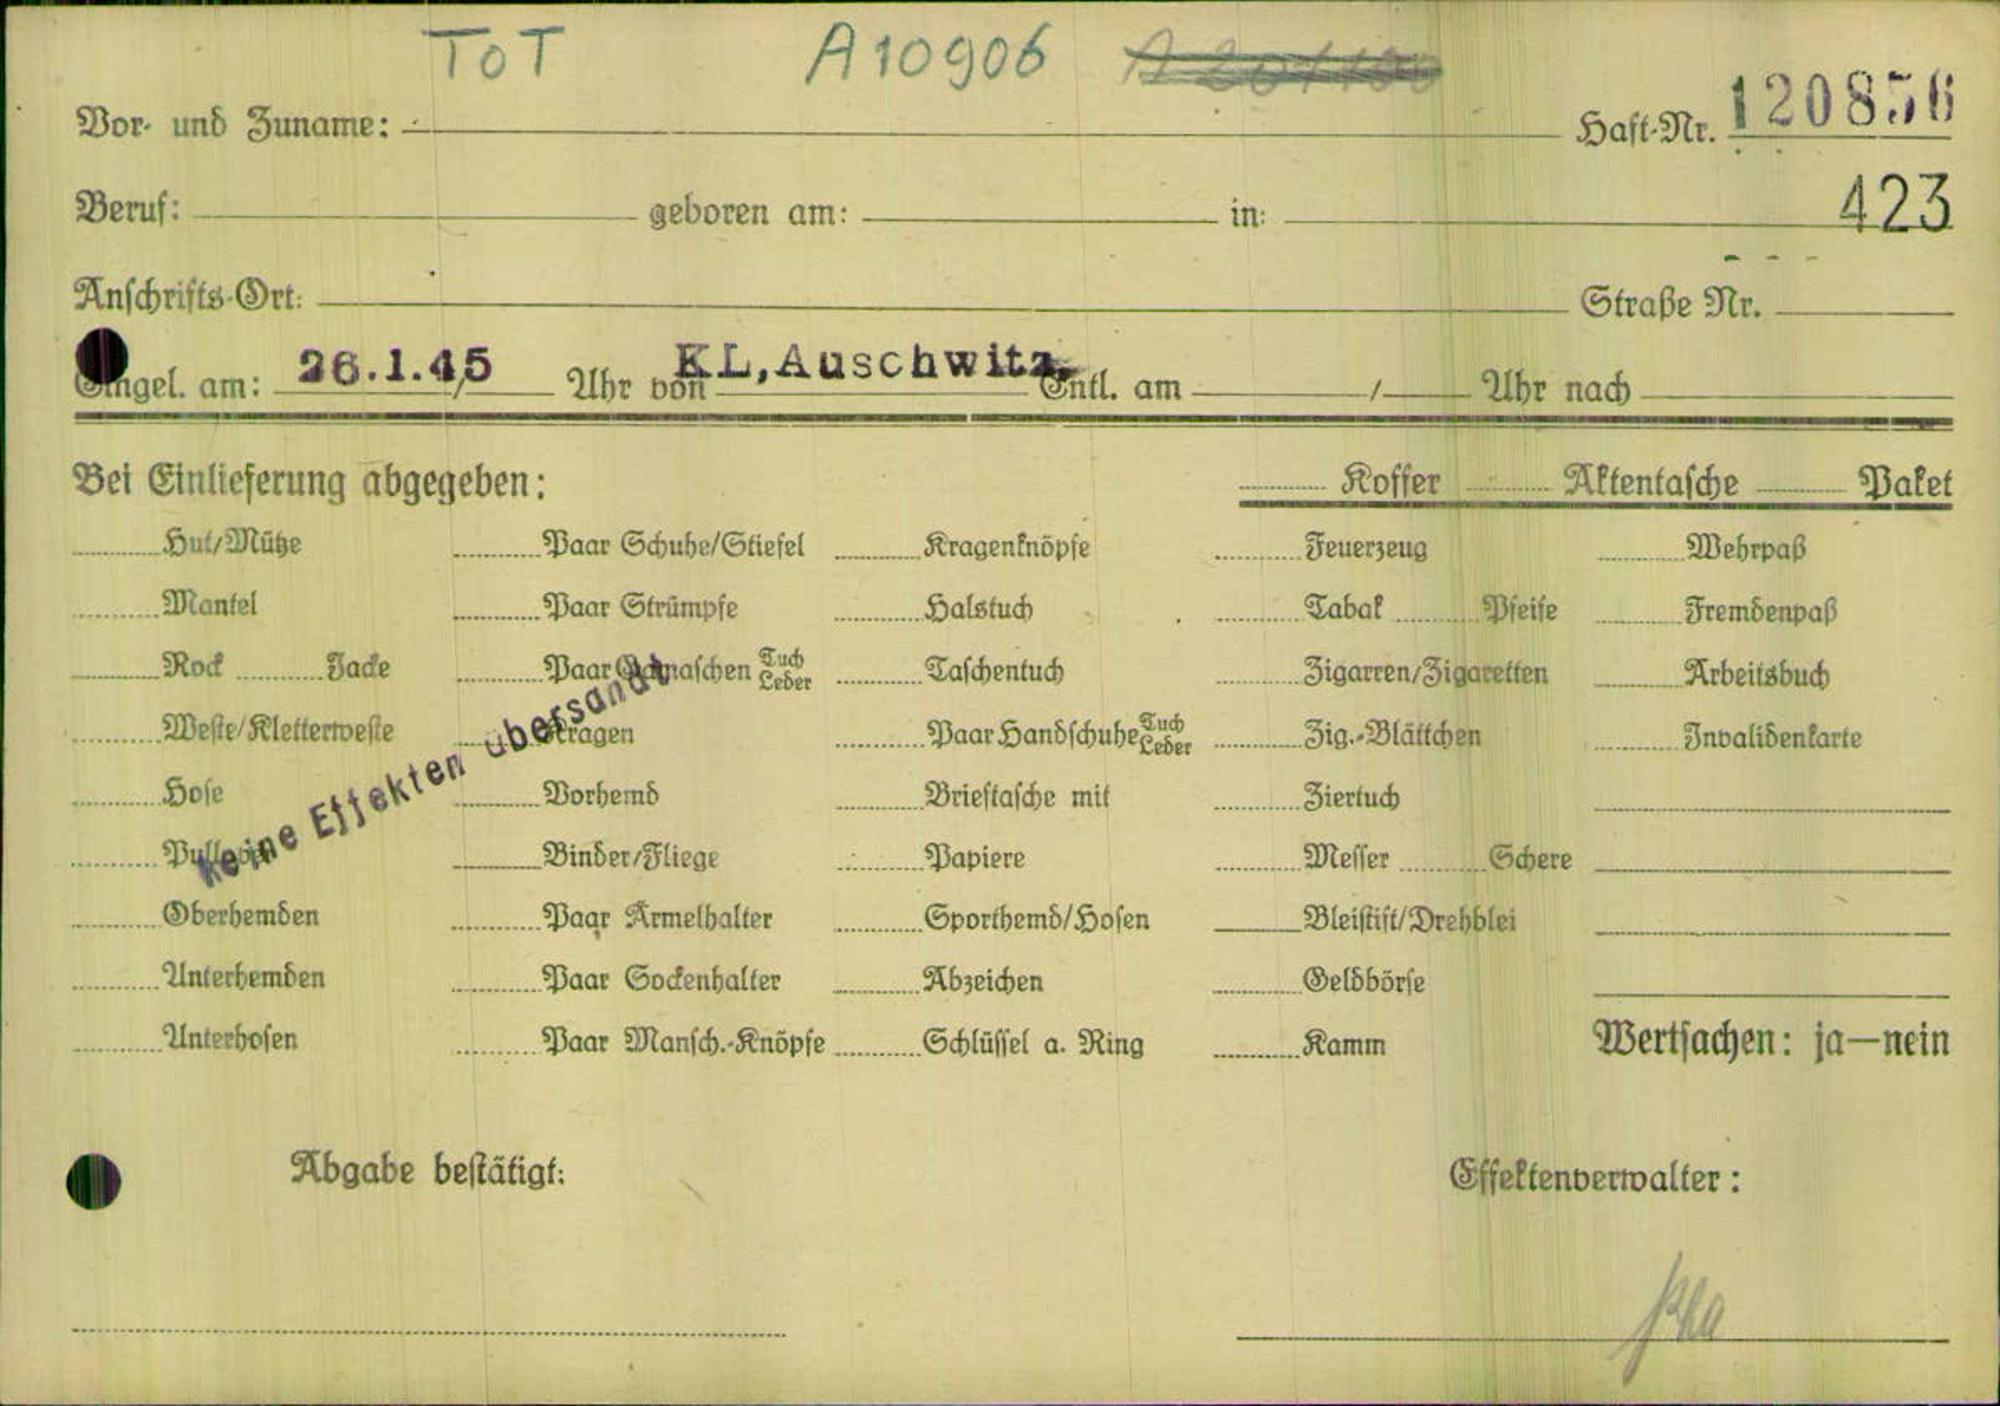 TOT A10906
Vor- und Zuname: Haft-Nr. 120856
Beruf: geboren am: in: 423
Anschrifts-Ort: Straße Nr.
Eingel. am: 26.1.45 Uhr von KL, Auschwitz, Entl. am / Uhr nach
Bei Einlieferung abgegeben: Koffer Aktentasche Paket
Hut/Mütze Paar Schuhe/Stiefel Kragenknöpfe Feuerzeug Wehrpaß
Mantel Paar Strümpfe Halstuch Tabak Pfeife Fremdenpaß
Rock Jacke Paar Gamaschen Tuch Leder Taschentuch Zigarren/Zigaretten Arbeitsbuch
Weste/Kletterweste Kragen Paar Handschuhe Tuch Leder Zig.-Blättchen Invalidenkarte
Hose Vorhemd Brieftasche mit Ziertuch
Pullover Binder/Fliege Papiere Messer Schere
Keine Effekten übersandt
Oberhemden Paar Ärmelhalter Sporthemd/Hosen Bleistift/Drehblei
Unterhemden Paar Sockenhalter Abzeichen Geldbörse
Unterhosen Paar Mansch.-Knöpfe Schlüssel a. Ring Kamm Wertsachen: ja—nein
Abgabe bestätigt: Effektenverwalter: